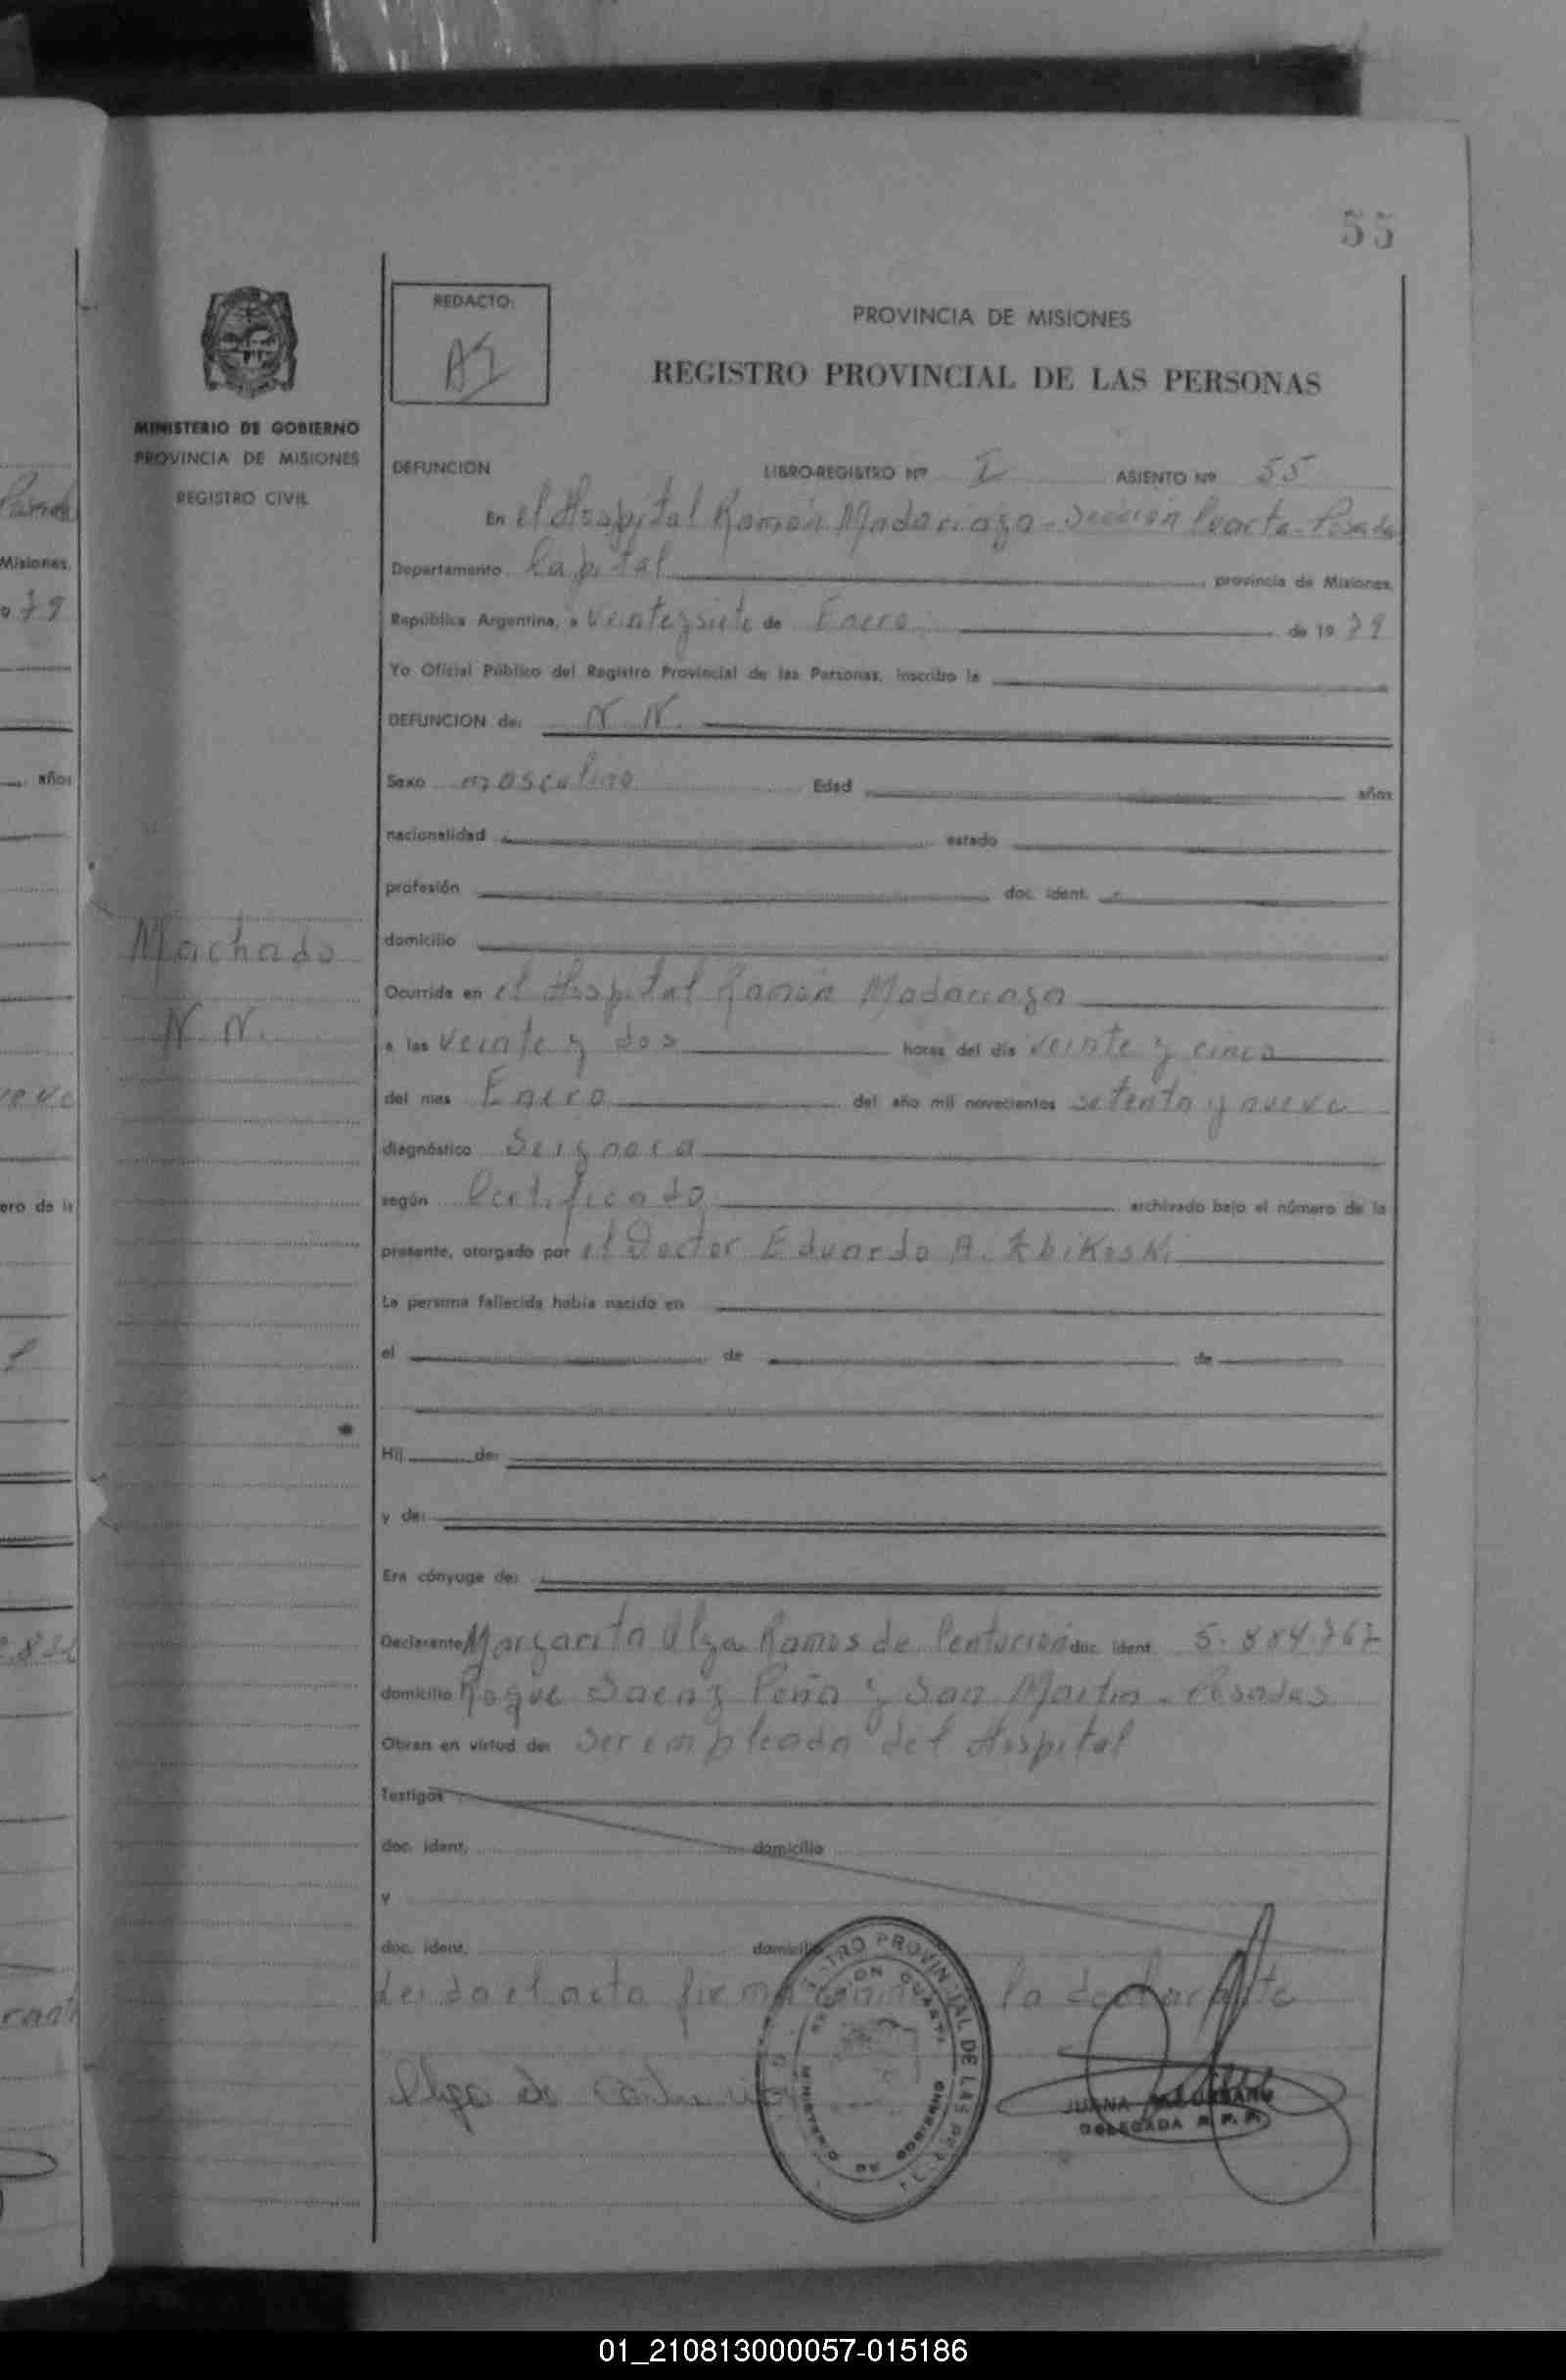 55
REDACTO:
AI
PROVINCIA DE MISIONES
REGISTRO PROVINCIAL DE LAS PERSONAS
MINISTERIO DE GOBIERNO
PROVINCIA DE MISIONES
REGISTRO CIVIL
DEFUNCION LIBRO-REGISTRO Nº I ASIENTO Nº 55
En el Hospital Ramón Madariaga - Sección Cuarta - Posadas
Departamento Capital provincia de Misiones,
República Argentina, a veinte y siete de Enero de 19 79
Yo Oficial Público del Registro Provincial de las Personas, inscribo la
DEFUNCION de: N. N.
Sexo masculino Edad años
nacionalidad estado
profesión doc. ident.
Machado
N. N.
domicilio
Ocurrida en el Hospital Ramón Madariaga
a las veinte y dos horas del día veinte y cinco
del mes Enero del año mil novecientos setenta y nueve
diagnóstico Se ignora
según Certificado archivado bajo el número de la
presente, otorgado por el Doctor Eduardo A. Zbikoski
La persona fallecida había nacido en
el de de
Hij de:
y de:
Era cónyuge de:
Declarante Margarita Olga Ramos de Centurión doc. ident. 5.884.767
domicilio Roque Saenz Peña y San Martin - Posadas
Obran en virtud de: ser empleada del Hospital
Testigos
doc. ident. domicilio
y
doc. ident. domicilio
Leida el acta firma la declarante
Olga de Centurión
JUANA
DELEGADA R. P. P.
Misiones,
79
años
01_210813000057-015186